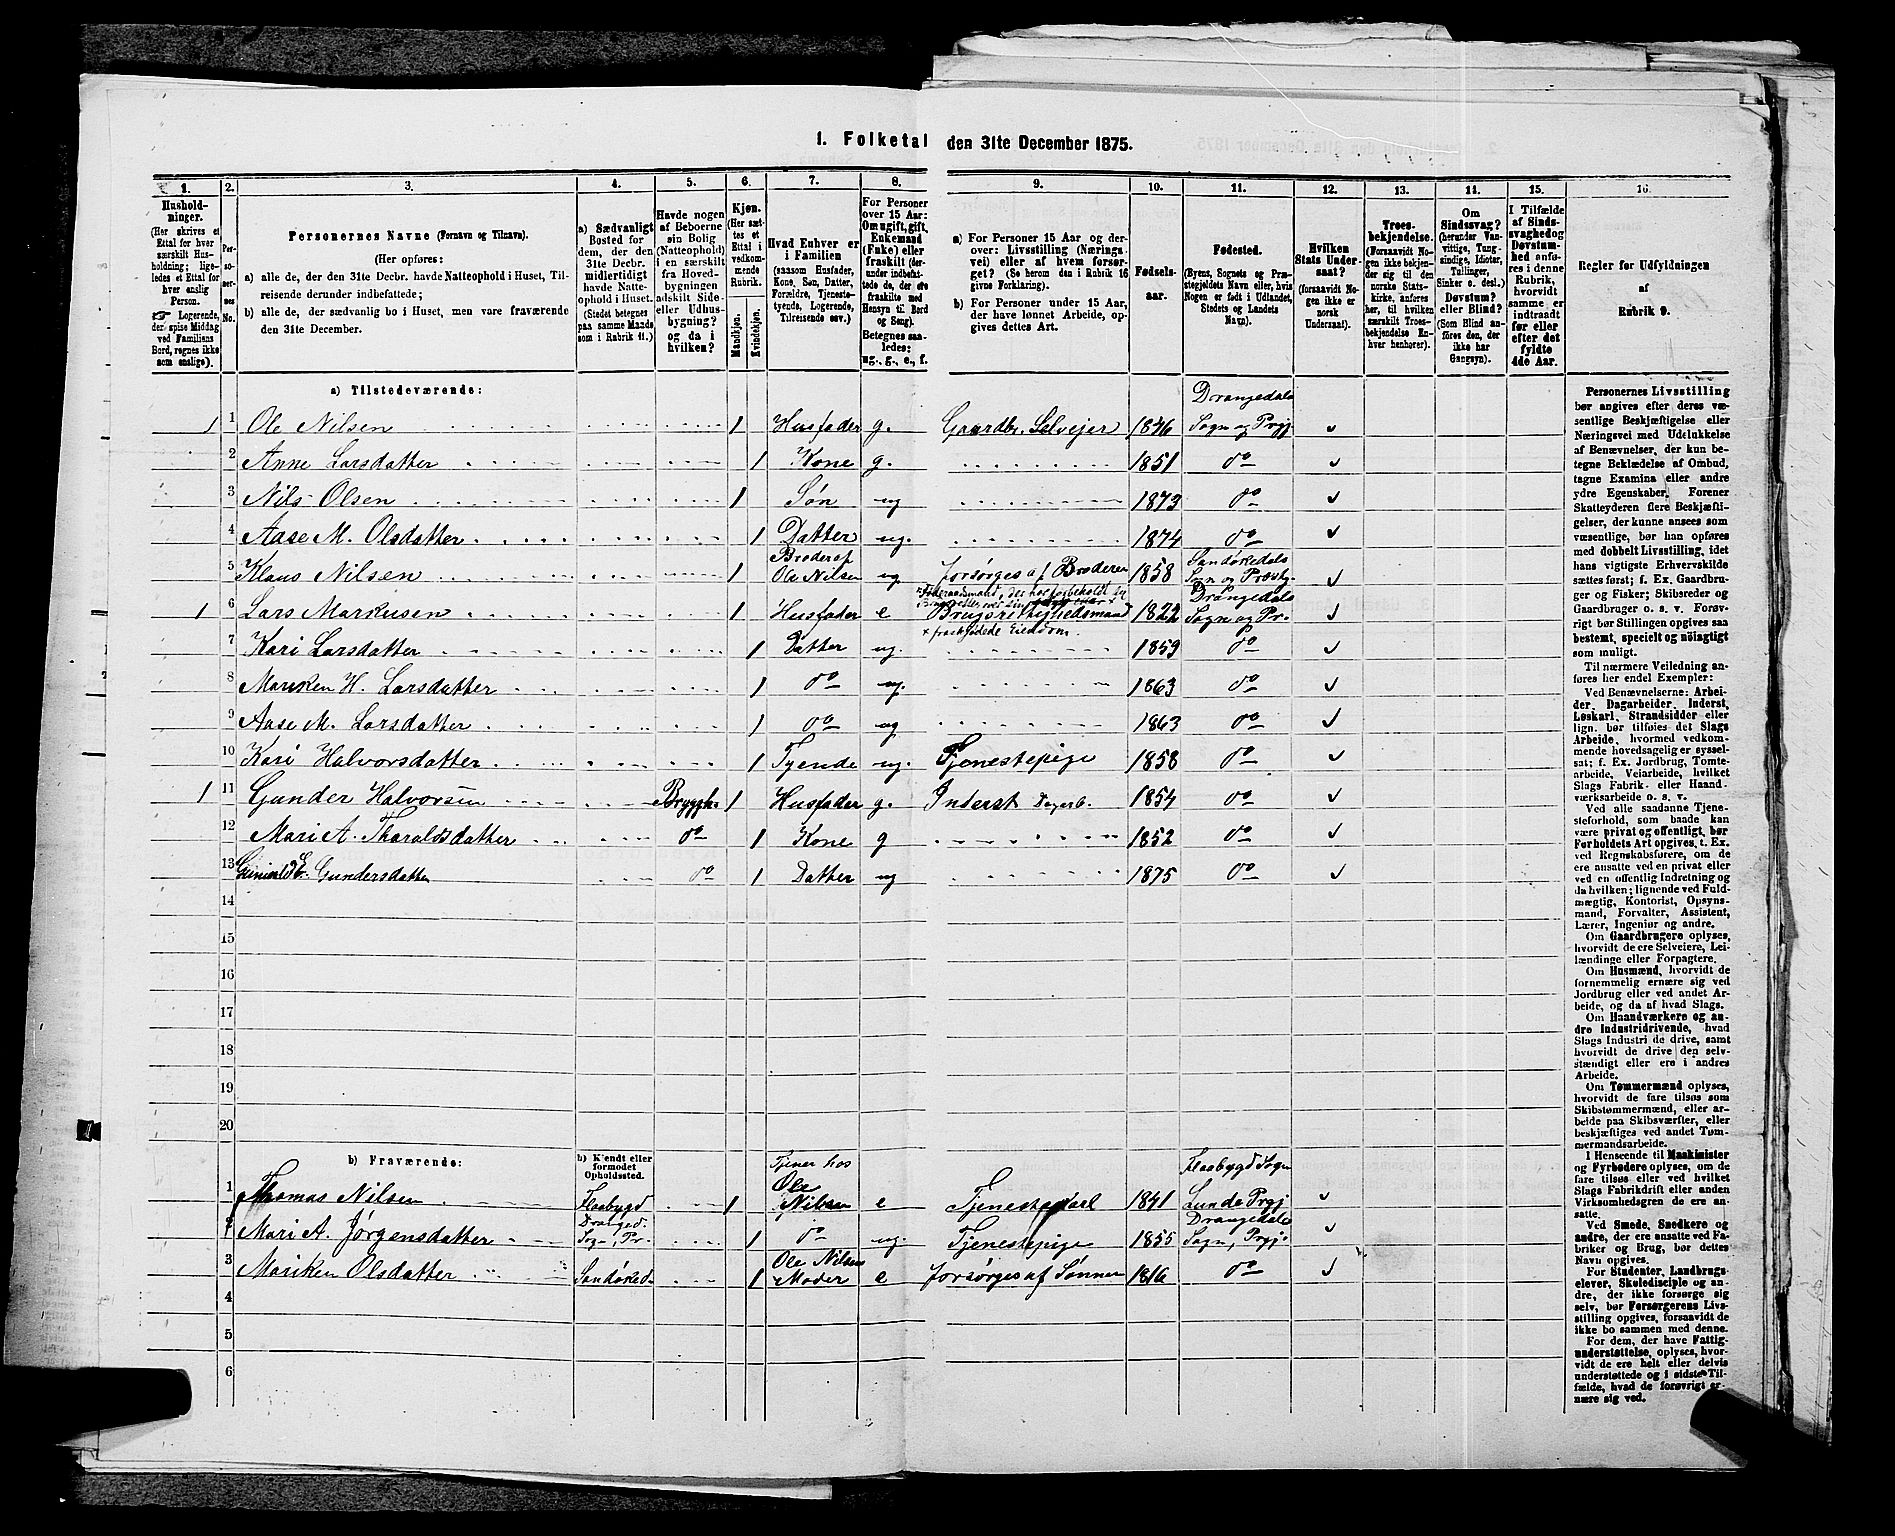 1. Folketal den 31te December 1875.
1. 2. 3. 4. 5. 6. 7. 8. 9. 10. 11. 12. 13. 14. 15. 16.
Hushold-
ninger.
(Her skrives et
Ettal for hver
særskilt Hus-
holdning; lige-
ledes et Ettal for
hver enslig
Person.
☞ Logerende,
der spise Middag
ved Familiens
Bord, regnes ikke
som enslige).
Per-
so-
ner-
nes
No.
Personernes Navne (Fornavn og Tilnavn).
(Her opføres:
a) alle de, der den 31te Decbr. havde Natteophold i Huset, Til-
reisende derunder indbefattede;
b) alle de, der sædvanlig bo i Huset, men vare fraværende
den 31te December.
a) Sædvanligt
Bosted for
dem, der den
31te Decbr.
midlertidigt
havde Natte-
ophold i Huset.
(Stedet betegnes
paa samme Maade
som i Rubrik 11.)
Havde nogen
af Beboerne
sin Bolig
(Natteophold)
i en særskilt
fra Hoved-
bygningen
adskilt Side-
eller Udhus-
bygning?
og da i
hvilken?
Kjøn.
(Her sæt-
tes et
Ettal i
vedkom-
mende
Rubrik.
Mandkjøn.
Kvindekjøn.
Hvad Enhver er
i Familien
(saasom Husfader,
Kone, Søn, Datter,
Forældre, Tjeneste-
tyende, Logerende,
Tilreisende osv.)
For Personer
over 15 Aar:
Om ugift, gift,
Enkemand
(Enke) eller
fraskilt (der-
under indbefat-
tede de, der ere
fraskilte med
Hensyn til Bord
og Seng).
Betegnes saa-
ledes:
ug., g., e., f.
a) For Personer 15 Aar og der-
over: Livsstilling (Nærings-
vei) eller af hvem forsør-
get? (Se herom den i Rubrik 16
givne Forklaring).
b) For Personer under 15 Aar,
der have lønnet Arbeide, op-
gives dettes Art.
Fødsels-
aar.
Fødested.
(Byens, Sognets og Præ-
stegjeldets Navn eller, hvis
Nogen er født i Udlandet,
Stedets og Landets
Navn).
Hvilken
Stats Under-
saat?
(forsaavidt No-
gen ikke er
norsk
Undersaat).
Troes-
bekjendelse.
(Forsaavidt No-
gen ikke bekjen-
der sig til den
norske Stats-
kirke, anføres
her, til hvilken
særskilt Troes-
bekjendelse En-
hver henhører).
Om
Sindssvag?
(herunder Van-
vittige, Tung-
sindige, Idioter,
Tullinger,
Sinker o. desl.)
Døvstum?
eller Blind?
(Som Blind an-
føres den, der
ikke har
Gangsyn).
I Tilfælde
af Sinds-
svaghed og
Døvstum-
hed anfø-
res i denne
Rubrik,
hvorvidt
samme er
indtraadt
før eller
efter det
fyldte
4de Aar.
Regler for Udfyldningen
af
Rubrik 9.
a) Tilstedeværende:
1 1 Ole Nilsen 1 Husfader g. Gaardbr. Selveier 1846 Drangedals Sogn og Prgj. ✓
2 Anne Larsdatter 1 Kone g. 1851 do ✓
3 Nils Olsen 1 Søn ug 1873 do ✓
4 Aase M. Olsdatter 1 Datter ug. 1874 do ✓
5 Klaus Nilsen 1 Broder af Ole Nilsen ug forsørges af Broderen 1858 Sandøkedals Sogn og Præstg. ✓
1 6 Lars Markusen 1 Husfader e
fraskjødede Eiendom.
1822 Drangedals Sogn og Pr. ✓
7 Kari Larsdatter 1 Datter ug. 1859 do ✓
8 Mariken H. Larsdatter 1 do ug. 1863 do ✓
9 Aase M. Larsdatter 1 do ug 1863 do ✓
10 Kari Halvorsdatter 1 Tyende ug. Tjenestepige 1858 do ✓
1 11 Gunder Halvorsen Bryggh. 1 Husfader g. Inderst Dagarb. 1854 do ✓
12 Mari A. Tharaldsdatter do 1 Kone g 1852 do ✓
13 Gundersdatter do 1 Datter ug 1875 do ✓
14
15
16
17
18
19
20
b) Fraværende:
b) Kjendt eller
formodet
Opholdssted.
1 Thomas Nilsen Flaabygd 1 Tjener hos Ole Nilsen e Tjenestekarl 1841 Flaabygd Sogn Lunde Prgj ✓
2 Mari A. Jørgensdatter Dranged. Sogn, Pr. 1 do ug. Tjenestepige 1855 Drangedals Sogn, Prgj. ✓
3 Mariken Olsdatter Sandøked. 1 Ole Nilsens Moder e forsørges af Sønnen 1816 do ✓
4
5
6
Personernes Livsstilling
bør angives efter deres væ-
sentlige Beskjæftigelse eller
Næringsvei med Udelukkelse
af Benævnelser, der kun be-
tegne Beklædelse af Ombud,
tagne Examina eller andre
ydre Egenskaber. Forener
Skatteyderen flere Beskjæfti-
gelser, der kunne ansees som
væsentlige, bør han opføres
med dobbelt Livsstilling, idet
hans vigtigste Erhvervskilde
sættes først; f. Ex. Gaardbru-
ger og Fisker; Skibsreder og
Gaardbruger o. s. v. Forøv-
rigt bør Stillingen opgives saa
bestemt, specielt og nøiagtigt
som muligt.
Til nærmere Veiledning an-
føres her endel Exempler:
Ved Benævnelserne: Arbei-
der, Dagarbeider, Inderst,
Løskarl, Strandsidder eller
lign. bør tilføies det Slags
Arbeide, hvormed vedkom-
mende hovedsagelig er syssel-
sat; f. Ex. Jordbrug, Tomte-
arbeide, Veiarbeide, hvilket
Slags Fabrik- eller Haand-
værksarbeide o. s. v.
Ved alle saadanne Tjene-
steforhold, som baade kan
være privat og offentligt, bør
Forholdets Art opgives, t. Ex.
ved Regnskabsførere, om de
ere ansatte ved en privat eller
ved en offentlig Indretning og
da hvilken; lignende ved Fuld-
mægtig, Kontorist, Opsyns-
mand, Forvalter, Assistent,
Lærer, Ingeniør og andre.
Om Gaardbrugere oplyses,
hvorvidt de ere Selveiere, Lei-
lændinge eller Forpagtere.
Om Husmænd, hvorvidt de
fornemmelig ernære sig ved
Jordbrug eller ved andet Ar-
beide, og da af hvad Slags.
Om Haandværkere og an-
dre Industridrivende, hvad
Slags Industri de drive, samt
hvorvidt de drive den selv-
stændigt eller ere i andres
Arbeide.
Om Tømmermænd oplyses,
hvorvidt de fare tilsøs som
Skibstømmermænd, eller ar-
beide paa Skibsværfter, eller
beskjæftiges ved andet Tøm-
mermandsarbeide.
I Henseende til Maskinister
og Fyrbødere oplyses, om de
fare tilsøs eller ved hvilket
Slags Fabrikdrift eller anden
Virksomhedsgren de ere an-
satte.
Ved Smede, Snedkere og
andre, der ere ansatte ved Fa-
briker og Brug, bør dettes
Navn opgives.
For Studenter, Landbrugs-
elever, Skoledisciple og an-
dre, der ikke forsørge sig
selv, bør Forsørgerens Livs-
stilling opgives, forsaavidt de
ikke bo sammen med denne.
For dem, der have Fattig-
understøttelse, oplyses, hvor-
vidt de ere helt eller delvis
understøttede og i sidste Til-
fælde, hvad de forøvrigt er-
nære sig ved.